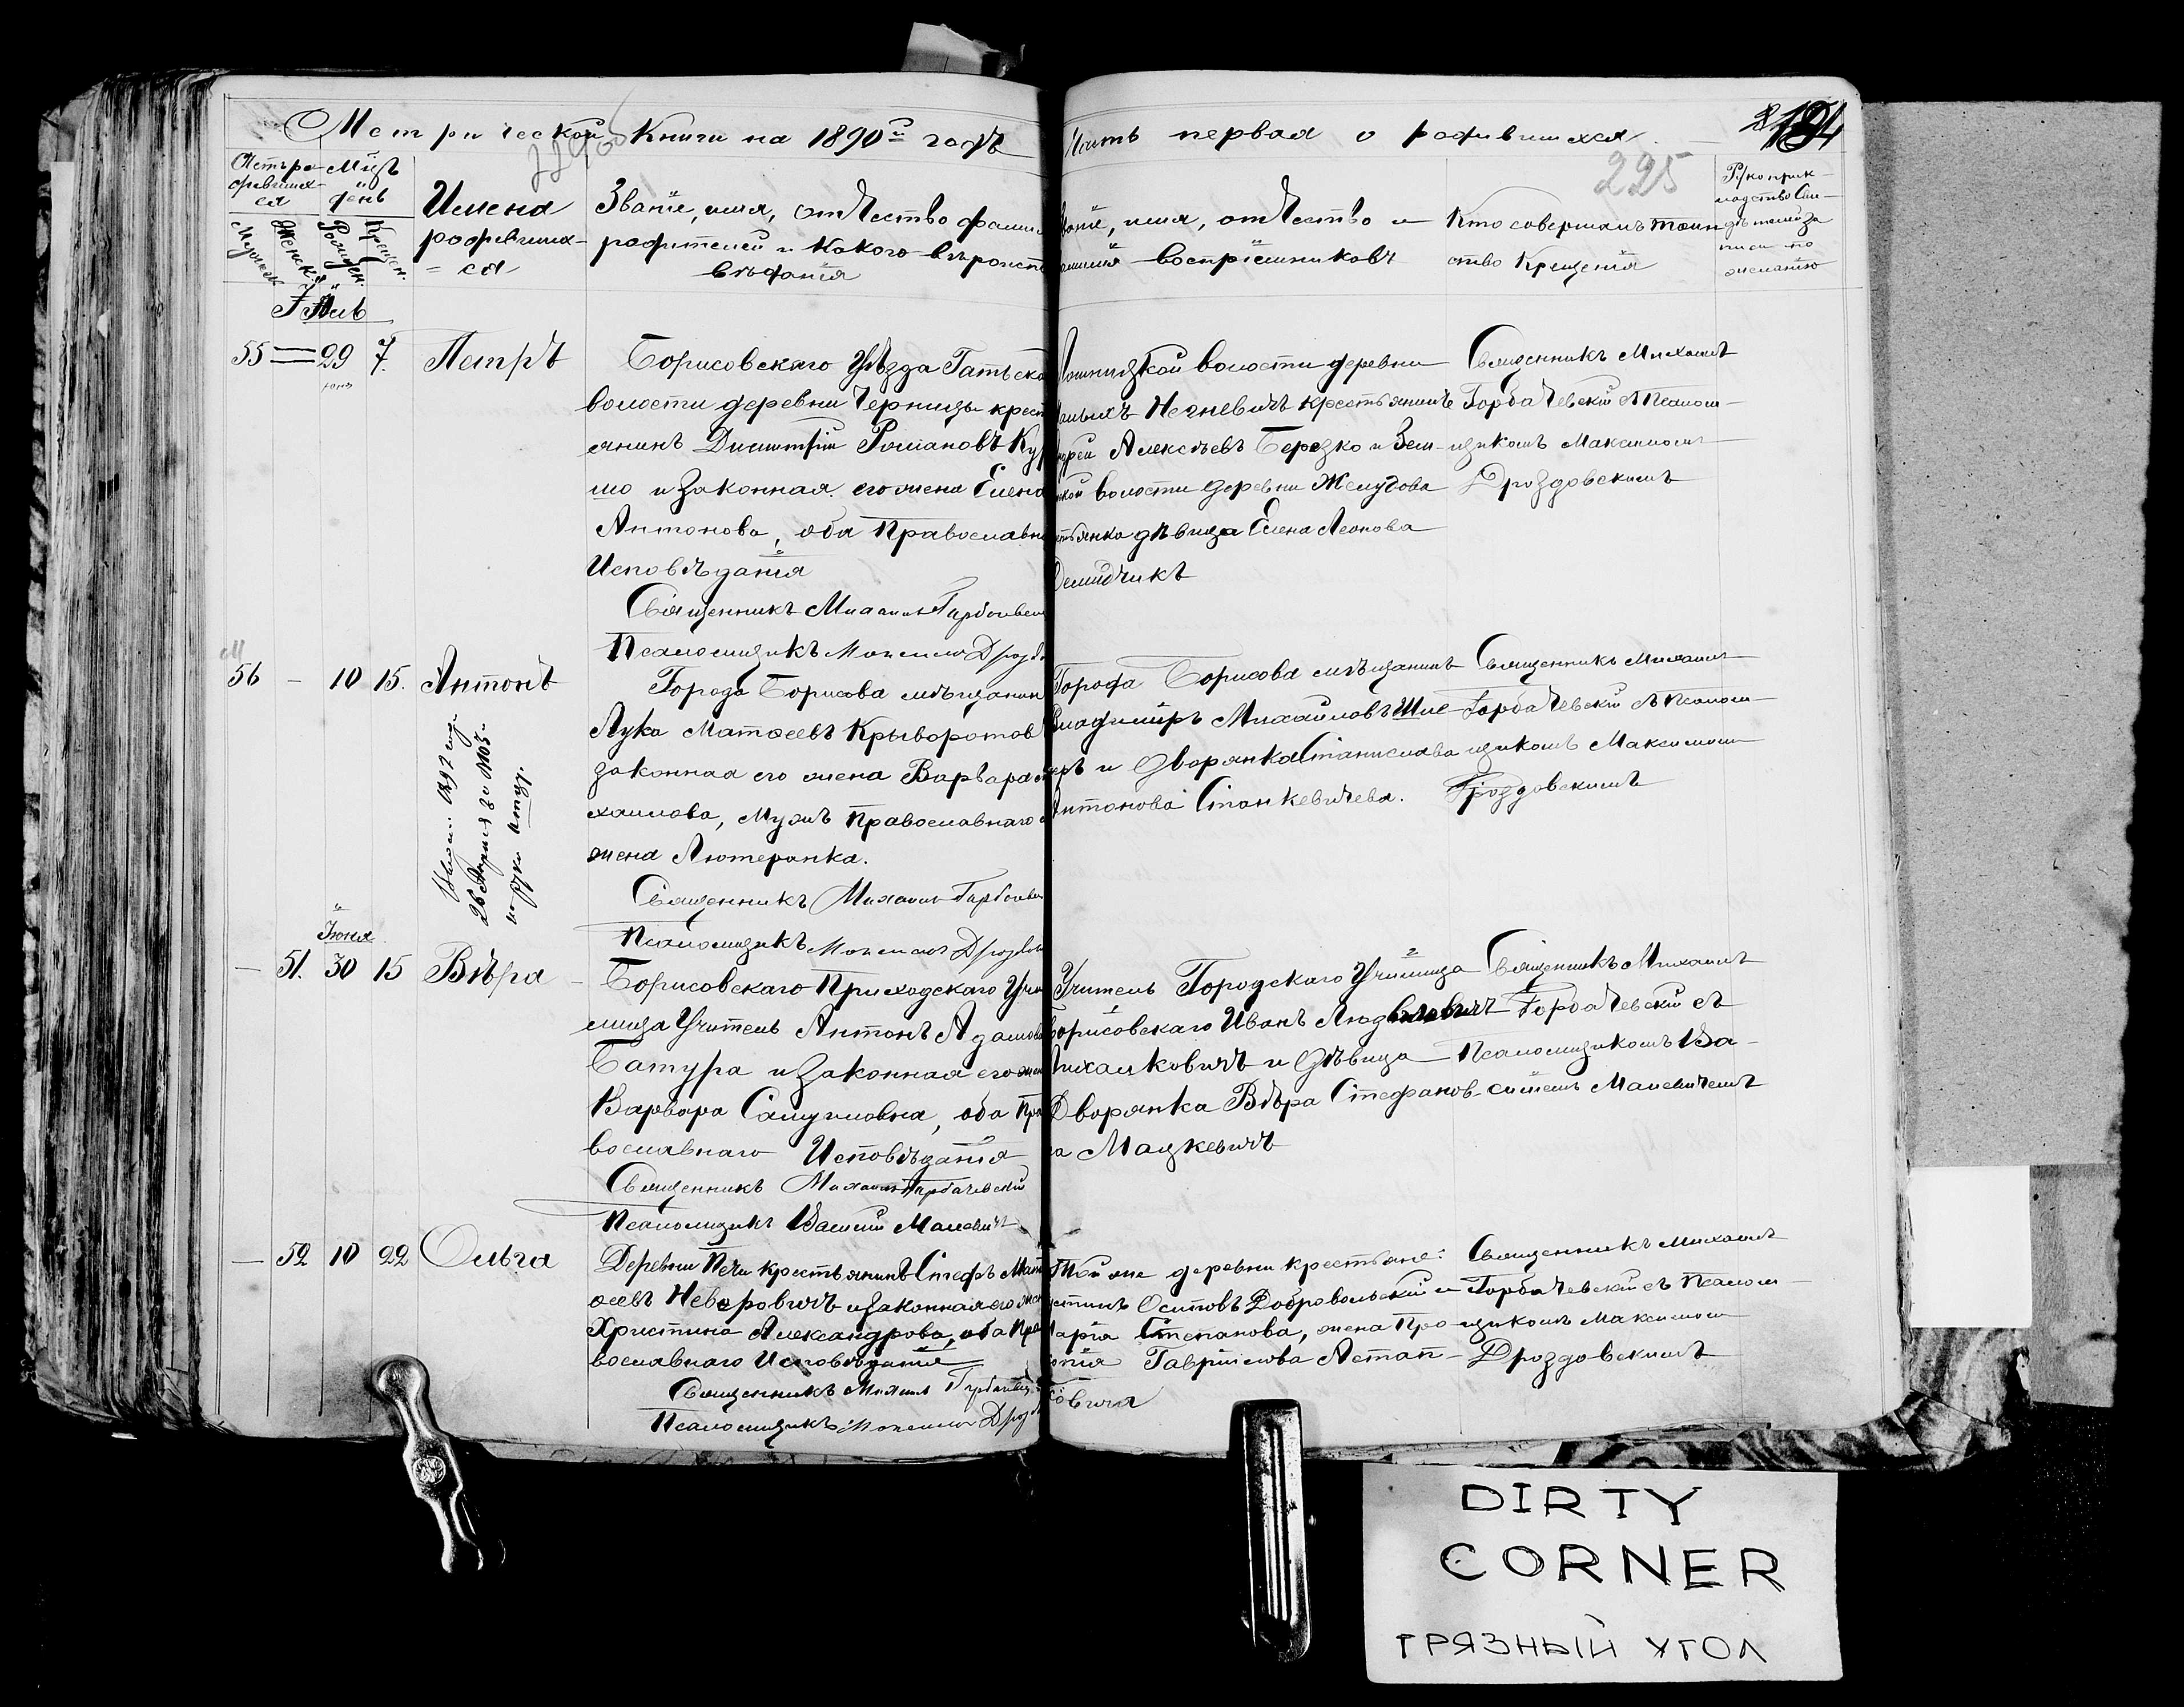 Метрической Книги на 1890й годъ
Часть первая о родившихся
194
225
Счетъ родившихся
Мѣсц. день
Мужеск.
Женск.
Рожден.
Крещен.
Имена
родивших-
= ся
Званіе, имя, отчество фамил
родителей и какого вѣроисп
вѣданія
имя, отчество и
воспріемниковъ
Кто совершалъ таин
ство Крещенія
Рукоприк-
ладство сви-
дѣтелей за
писи по
желанію
Іюль
55 = 29 7. Петръ
Борисовскаго Уѣзда Гатьско
волости деревни Черницы крест
янинъ Димитрій Романовъ Ку
и законная его жена Елена
Антонова, оба Православн
Исповѣданія
Священникъ Михаилъ Горбачевс
Псаломщикъ Максимъ Дрозд
Лошницкой волости деревни
Негневичъ крестьянинъ
Алексѣевъ Березко и Зем-
кой волости деревни Желудова
янка дѣвица Елена Леонова
Демидчикъ
Священникъ Михаилъ
Горбачевскій съ Псалом-
щикомъ Максимомъ
Дроздовскимъ
56 - 10 15. Антонъ
26 Апрѣля за №103
Города Борисова мѣщанин
Лука Матѳеевъ Крыворотов
законная его жена Варвара М
хаилова, Мужъ Православнаго
жена Лютеранка.
Священникъ Михаилъ Горбачев
Псаломщикъ Максимъ Дроздов
Города Борисова мѣщанинъ
Владиміръ Михайловъ Шле-
ръ и Дворянка Станислава
Антонова Станкевичева.
Священникъ Михаилъ
Горбачевскій съ Псалом-
щикомъ Максимомъ
Дроздовскимъ
Іюня
— 51. 30 15 Вѣра
Борисовскаго Приходскаго Учи
лища Учитель Антонъ Адамов
Батура и законная его жен
Варвара Самуиловна, оба Пра
вославнаго Исповѣданія
Священникъ Михаилъ Горбачевскій
Псаломщикъ Василій Малевичъ
Учитель Городскаго Училища
Борисовскаго Иванъ Людвиговичъ
Михалковичъ и Дѣвица
Дворянка Вѣра Стефанов-
на Мацкевичъ
Священникъ Михаилъ
Горбачевскій съ
Псаломщикомъ Ва-
силіемъ Малевичемъ
— 52 10 22 Ольга
Деревни Печи крестьянинъ Стефъ Мат
ѳеевъ Неверовичъ и законная его жен
Христина Александрова, оба Пра
вославнаго Исповѣданія
Священникъ Михаилъ Горбачевс
Псаломщикъ Максимъ Дрозд
Той же деревни крестьяне:
устинъ Осиповъ Добровольскій и
Марія Степанова, жена Про
копія Гавріилова Астап-
ковича
Священникъ Михаилъ
Горбачевскій съ Псалом-
щикомъ Максимом
Дроздовскимъ
DIRTY
CORNER
ГРЯЗНЫЙ УГОЛ